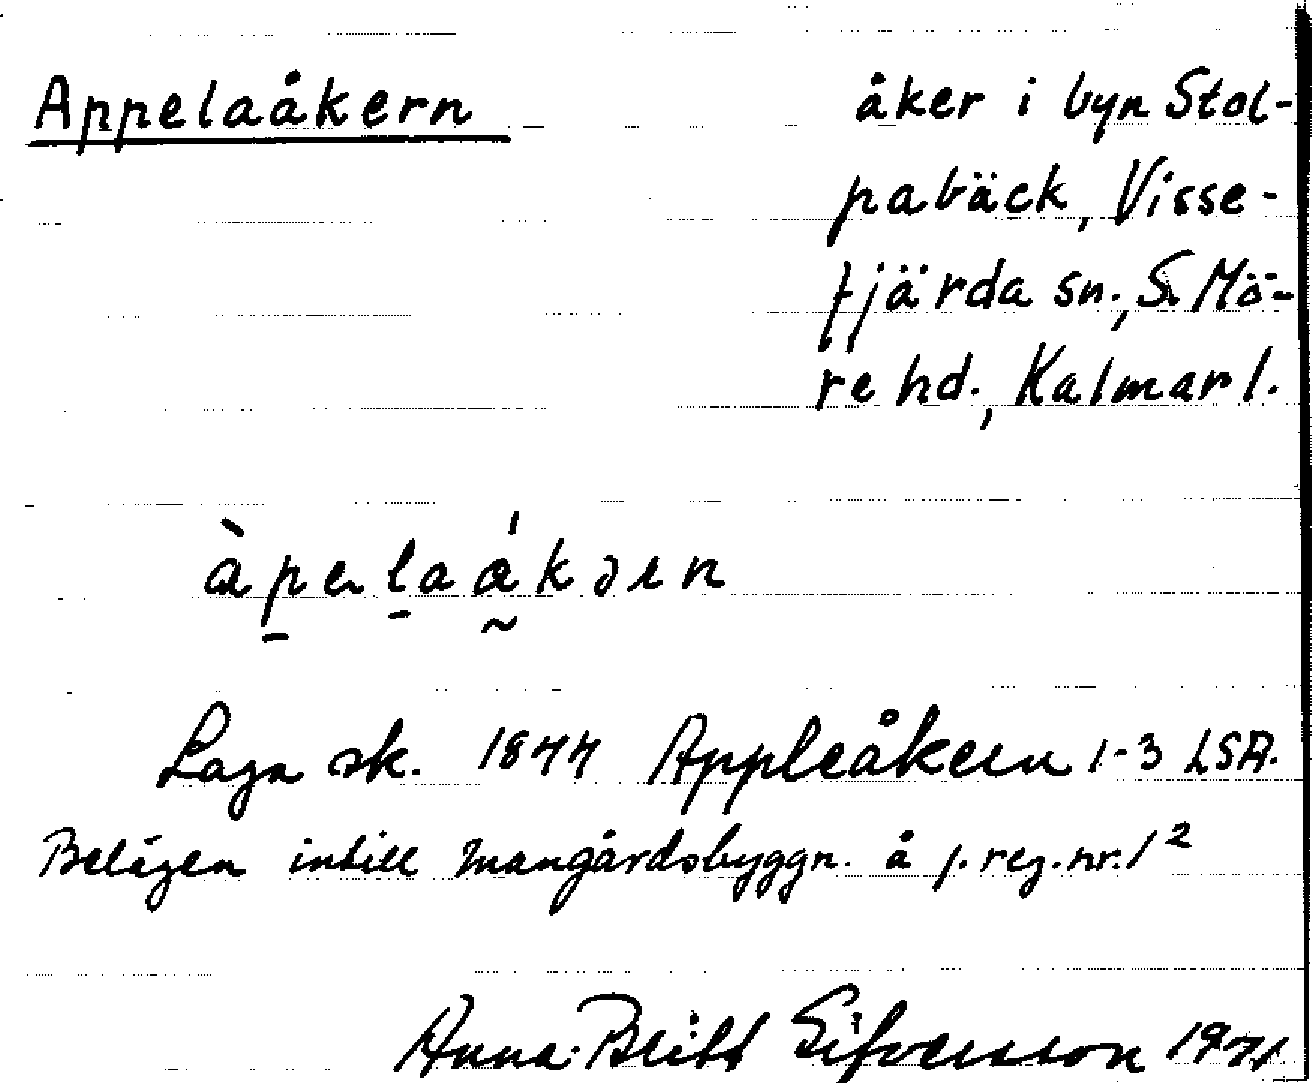 Appelaåkern åker i byn Stol-
pabäck, Visse-
fjärda sn., S. Mö-
re hd., Kalmar l.
Laga sk. 1844 Appleåkern 1-3 LSA.
Belägen intill mangårdsbyggn. å j. reg. nr. 1²
Anna-Britt Sifversson 1971